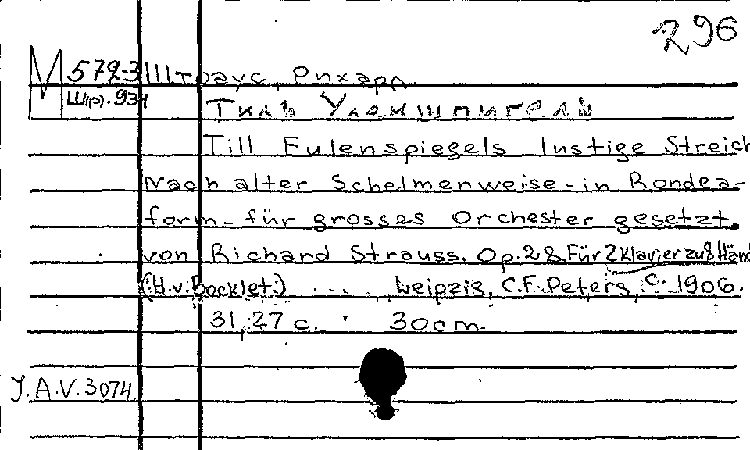 296
М 579-3 Штраус, Рихард.
Ш(р).934 Тиль Уленшпигель
Till Eulenspiegels lustige Streich
Nach alter Schelmenweise-in Rondea-
form-für grosses Orchester gesetzt
von Richard Strauss. Op.28. Für 2 Klavier zu 8 Hän
(H.v.Bocklet.) .... Leipzig, C.F.Peters, C. 1906.
31,27 c. 30 cm.
J.A.V.3074